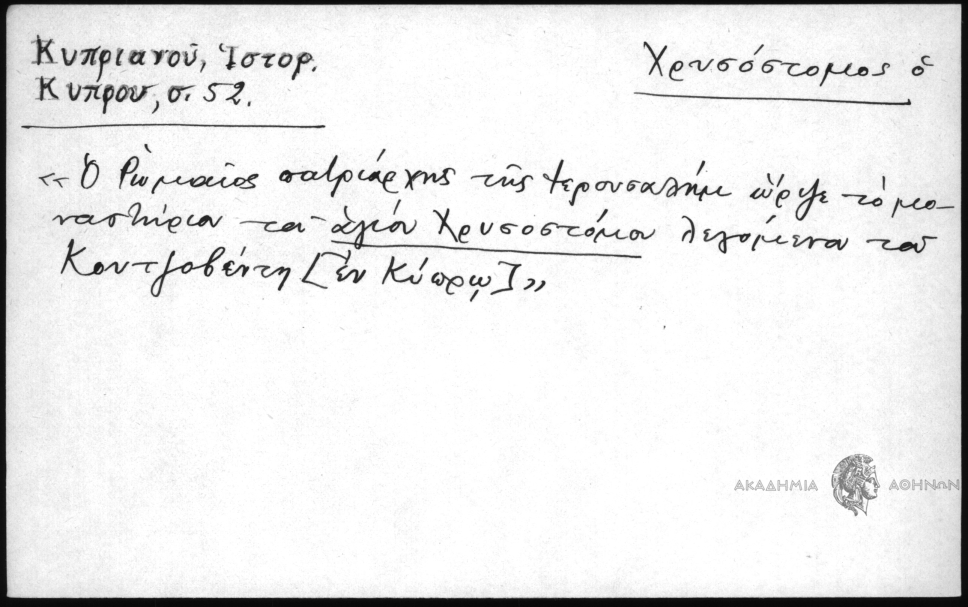 Κυπριανοῦ, Ἱστορ.
Κύπρου, σ. 52.
Χρυσόστομος ὁ
«Ὁ Ρωμαῖος πατριάρχης τῆς Ἱερουσαλὴμ ὥριζε τὸ μο-
ναστήριον τοῦ ἁγίου Χρυσοστόμου λεγόμενον τοῦ
Κουτζοβέντη [ἐν Κύπρῳ]»
ΑΚΑΔΗΜΙΑ ΑΘΗΝΩΝ